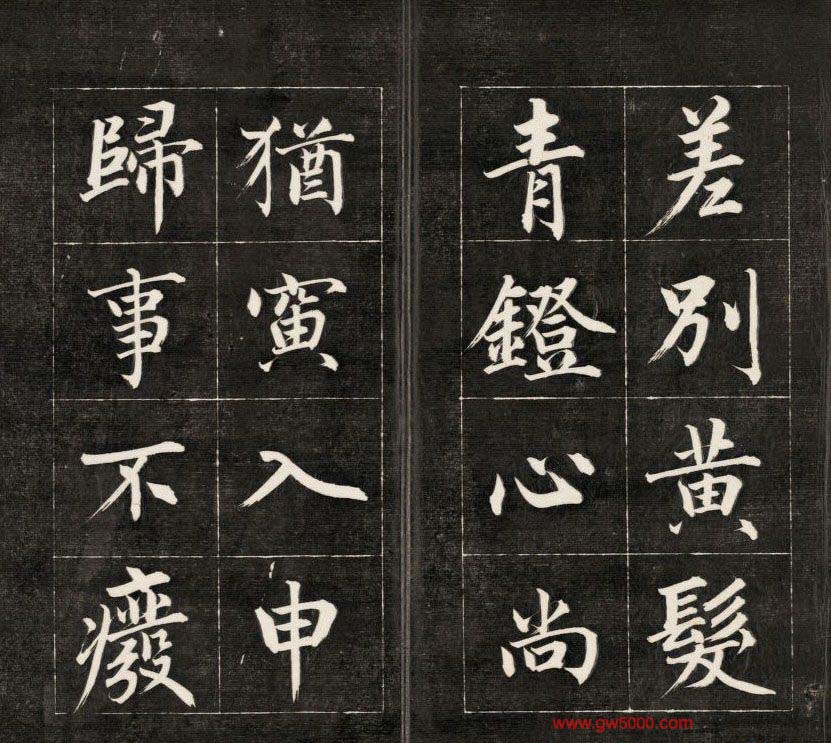 差別黃髮
青鐙心尚
猶寅入申
歸事不癈
www.gw5000.com